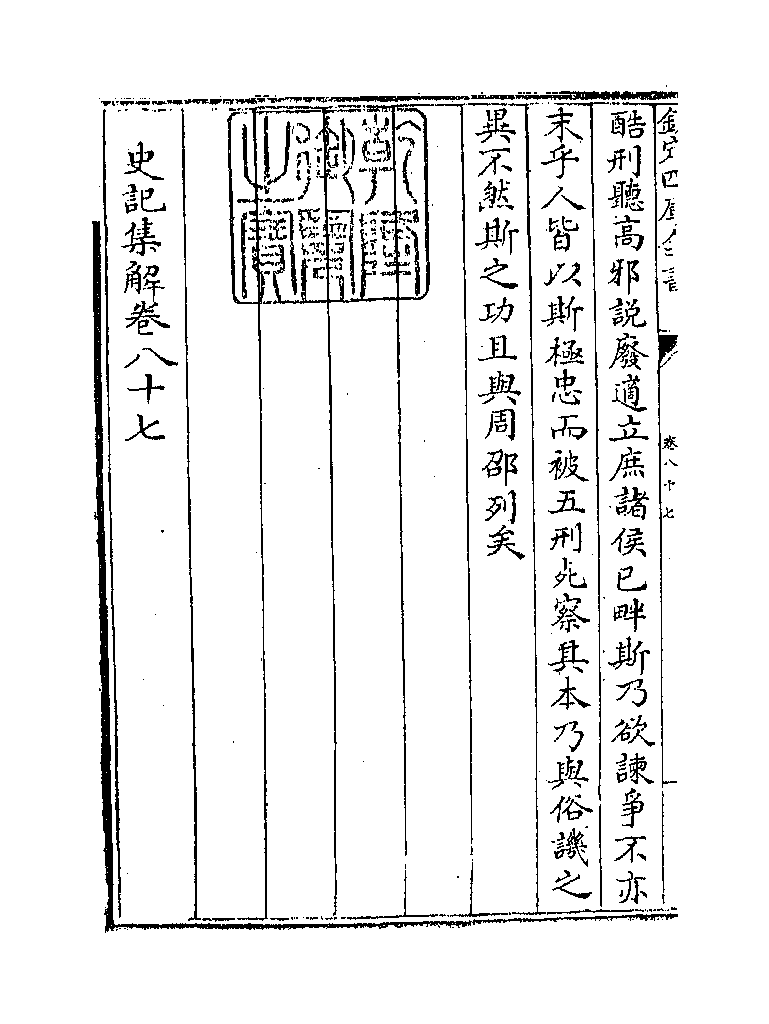 欽定四庫全書
卷八十七
酷刑聽高邪說廢適立庶諸侯已畔斯乃欲諫爭不亦
末乎人皆以斯極忠而被五刑死察其本乃與俗譏之
異不然斯之功且與周邵列矣
乾隆
御覽
之寶
史記集解卷八十七